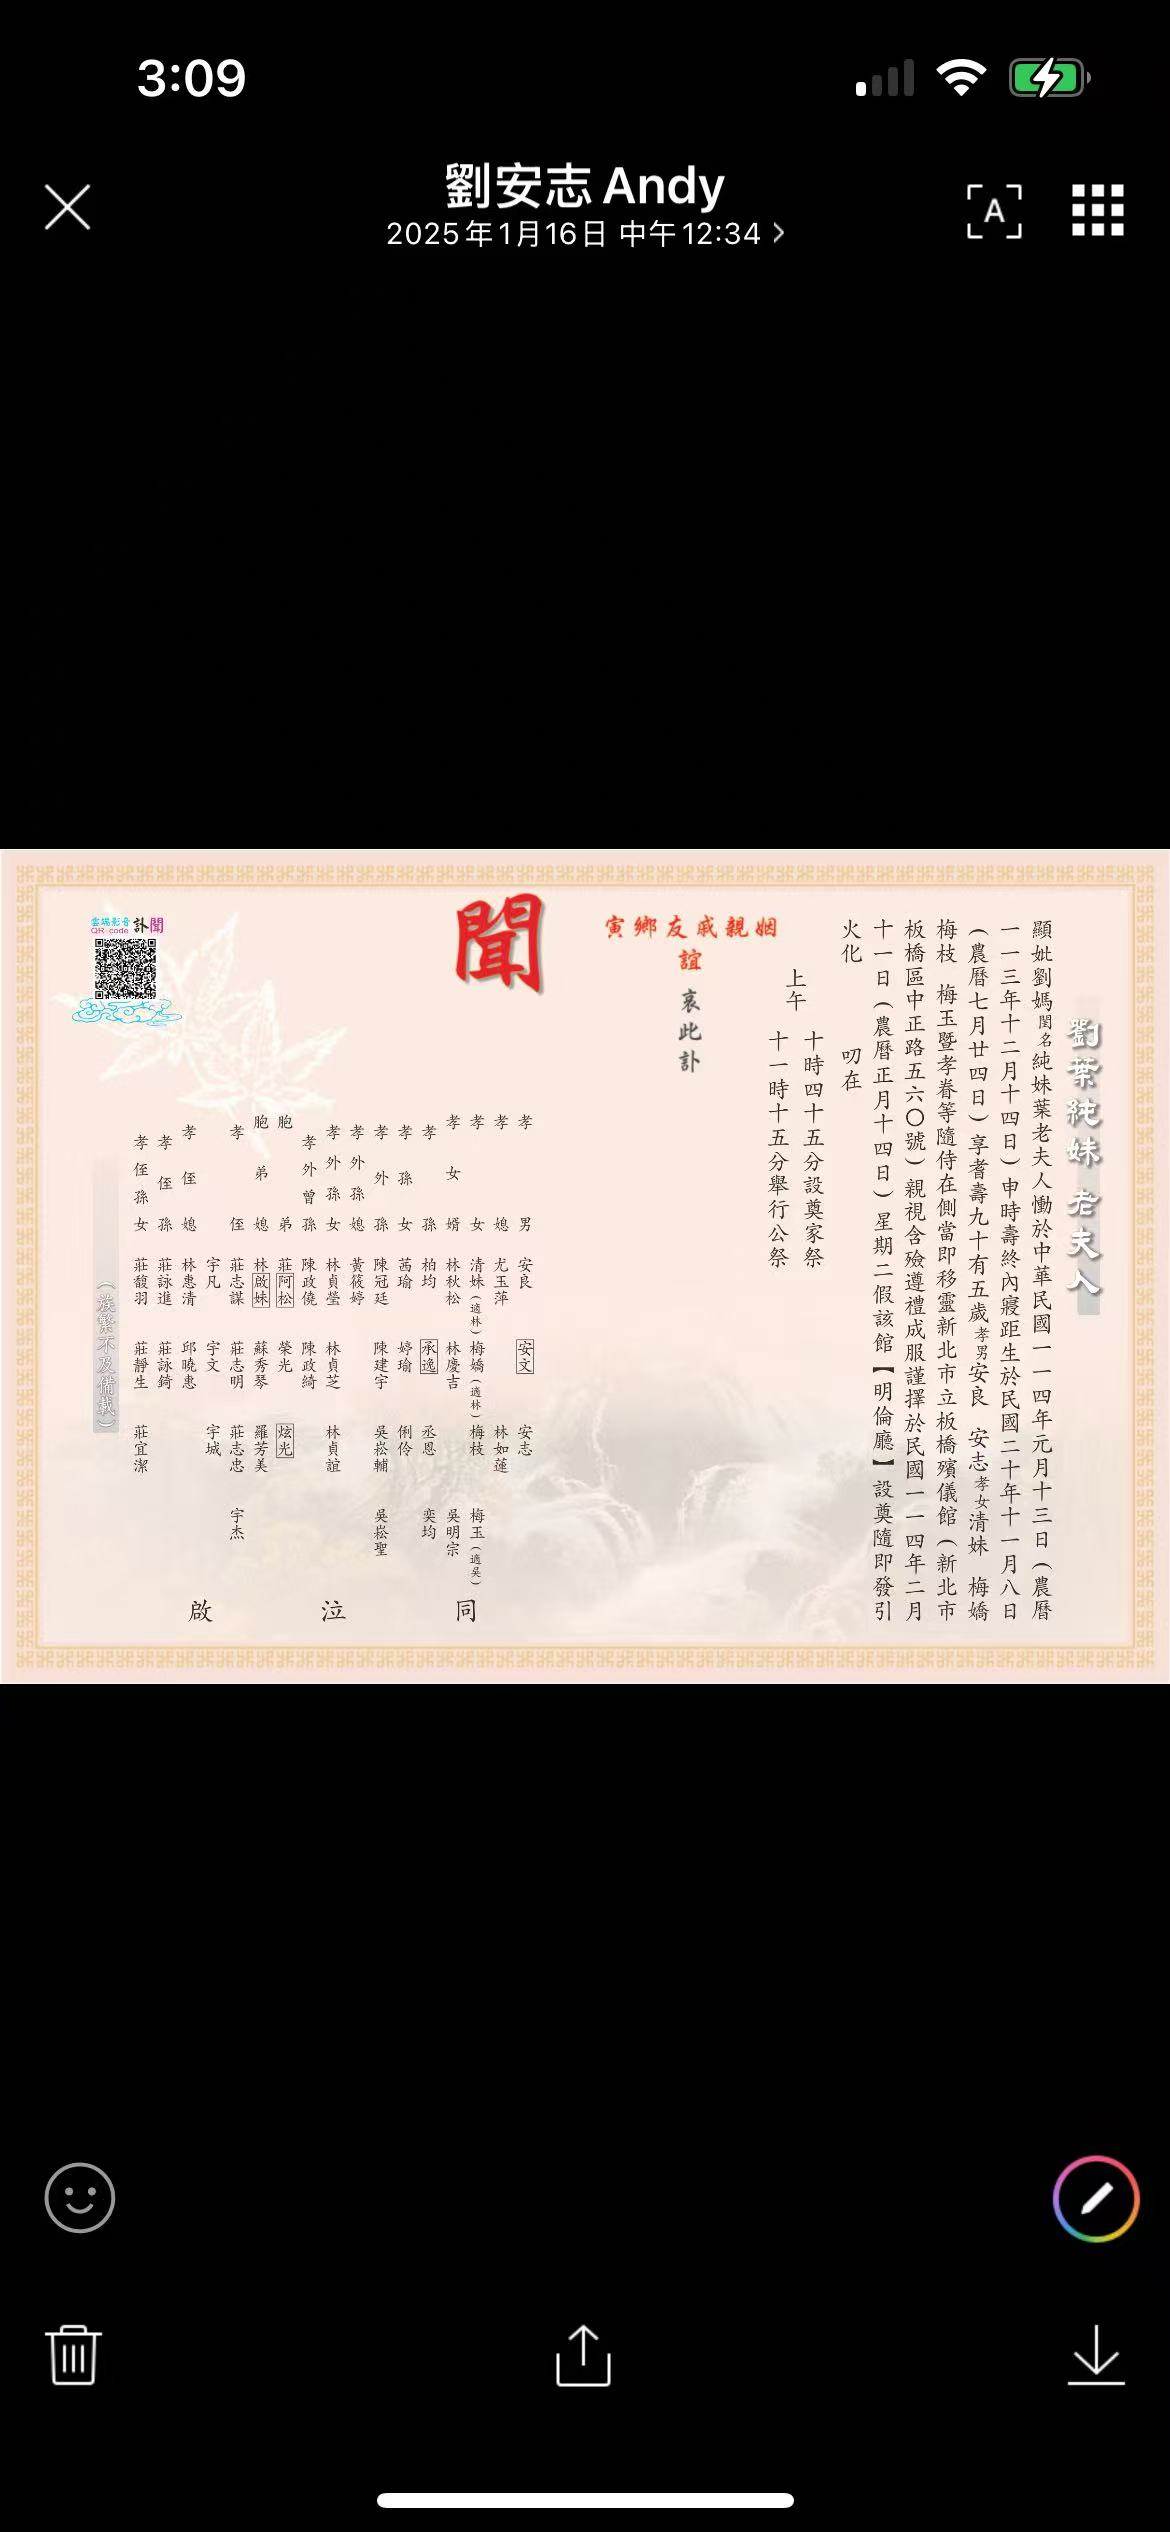 3:09
劉安志 Andy
2025年1月16日 中午12:34
A
劉葉純妹 老夫人
顯妣劉媽閨名純妹葉老夫人慟於中華民國一一四年元月十三日(農曆
一一三年十二月十四日)申時壽終內寢距生於民國二十年十一月八日
(農曆七月廿四日)享耆壽九十有五歲孝男安良 安志孝女清妹 梅嬌
梅枝 梅玉暨孝眷等隨侍在側當即移靈新北市立板橋殯儀館(新北市
板橋區中正路五六〇號)親視含殮遵禮成服謹擇於民國一一四年二月
十一日(農曆正月十四日)星期二假該館【明倫廳】設奠隨即發引
火化 叨在
上午
十時四十五分設奠家祭
十一時十五分舉行公祭
姻親戚友鄉寅
誼
哀此訃
聞
孝男 安良 安文 安志
孝媳 尤玉萍 林如蓮
孝女 清妹(適林) 梅嬌(適林) 梅枝 梅玉(適吳)
孝女婿 林秋松 林慶吉 吳明宗
孝孫 柏均 承逸 丞恩 奕均
孝孫女 茜瑜 婷瑜 俐伶
孝外孫 陳冠廷 陳建宇 吳崧輔 吳崧聖
孝外孫媳 黃筱婷
孝外孫女 林貞瑩 林貞芝 林貞誼
孝外曾孫 陳政僥 陳政綺
胞弟 莊阿松 榮光 炫光
胞弟媳 林啟妹 蘇秀琴 羅芳美
孝侄 莊志謀 莊志明 莊志忠 宇杰
宇凡 宇文 宇城
孝侄媳 林惠清 邱曉惠
孝侄孫 莊詠進 莊詠錡
孝侄孫女 莊馥羽 莊靜生 莊宜潔
同泣啟
(族繁不及備載)
雲端影音
QR-code
訃聞